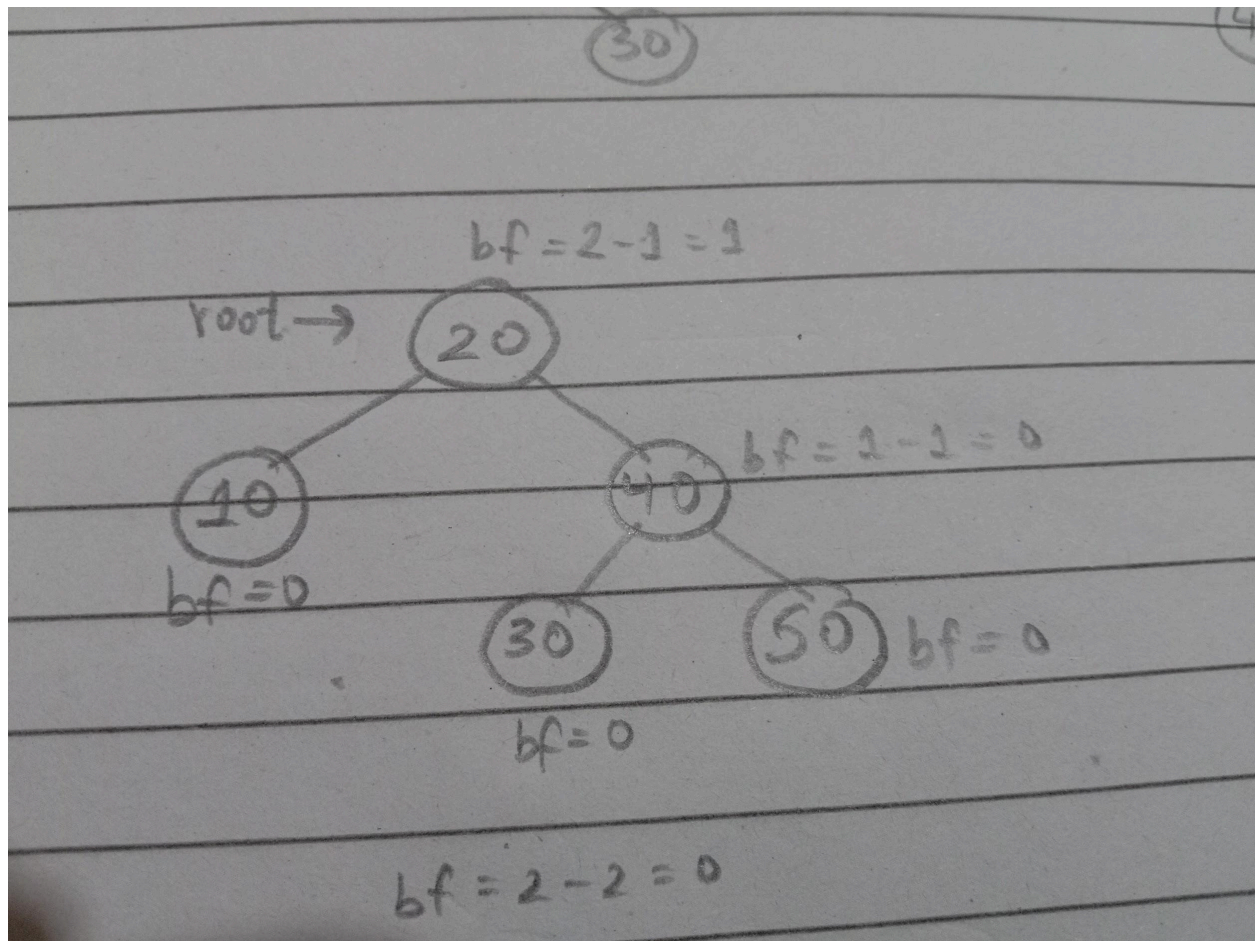 30
bf = 2-1 = 1
root →
20
bf = 1-1 = 0
10
40
bf = 0
30
50
bf = 0
bf = 0
bf = 2-2 = 0